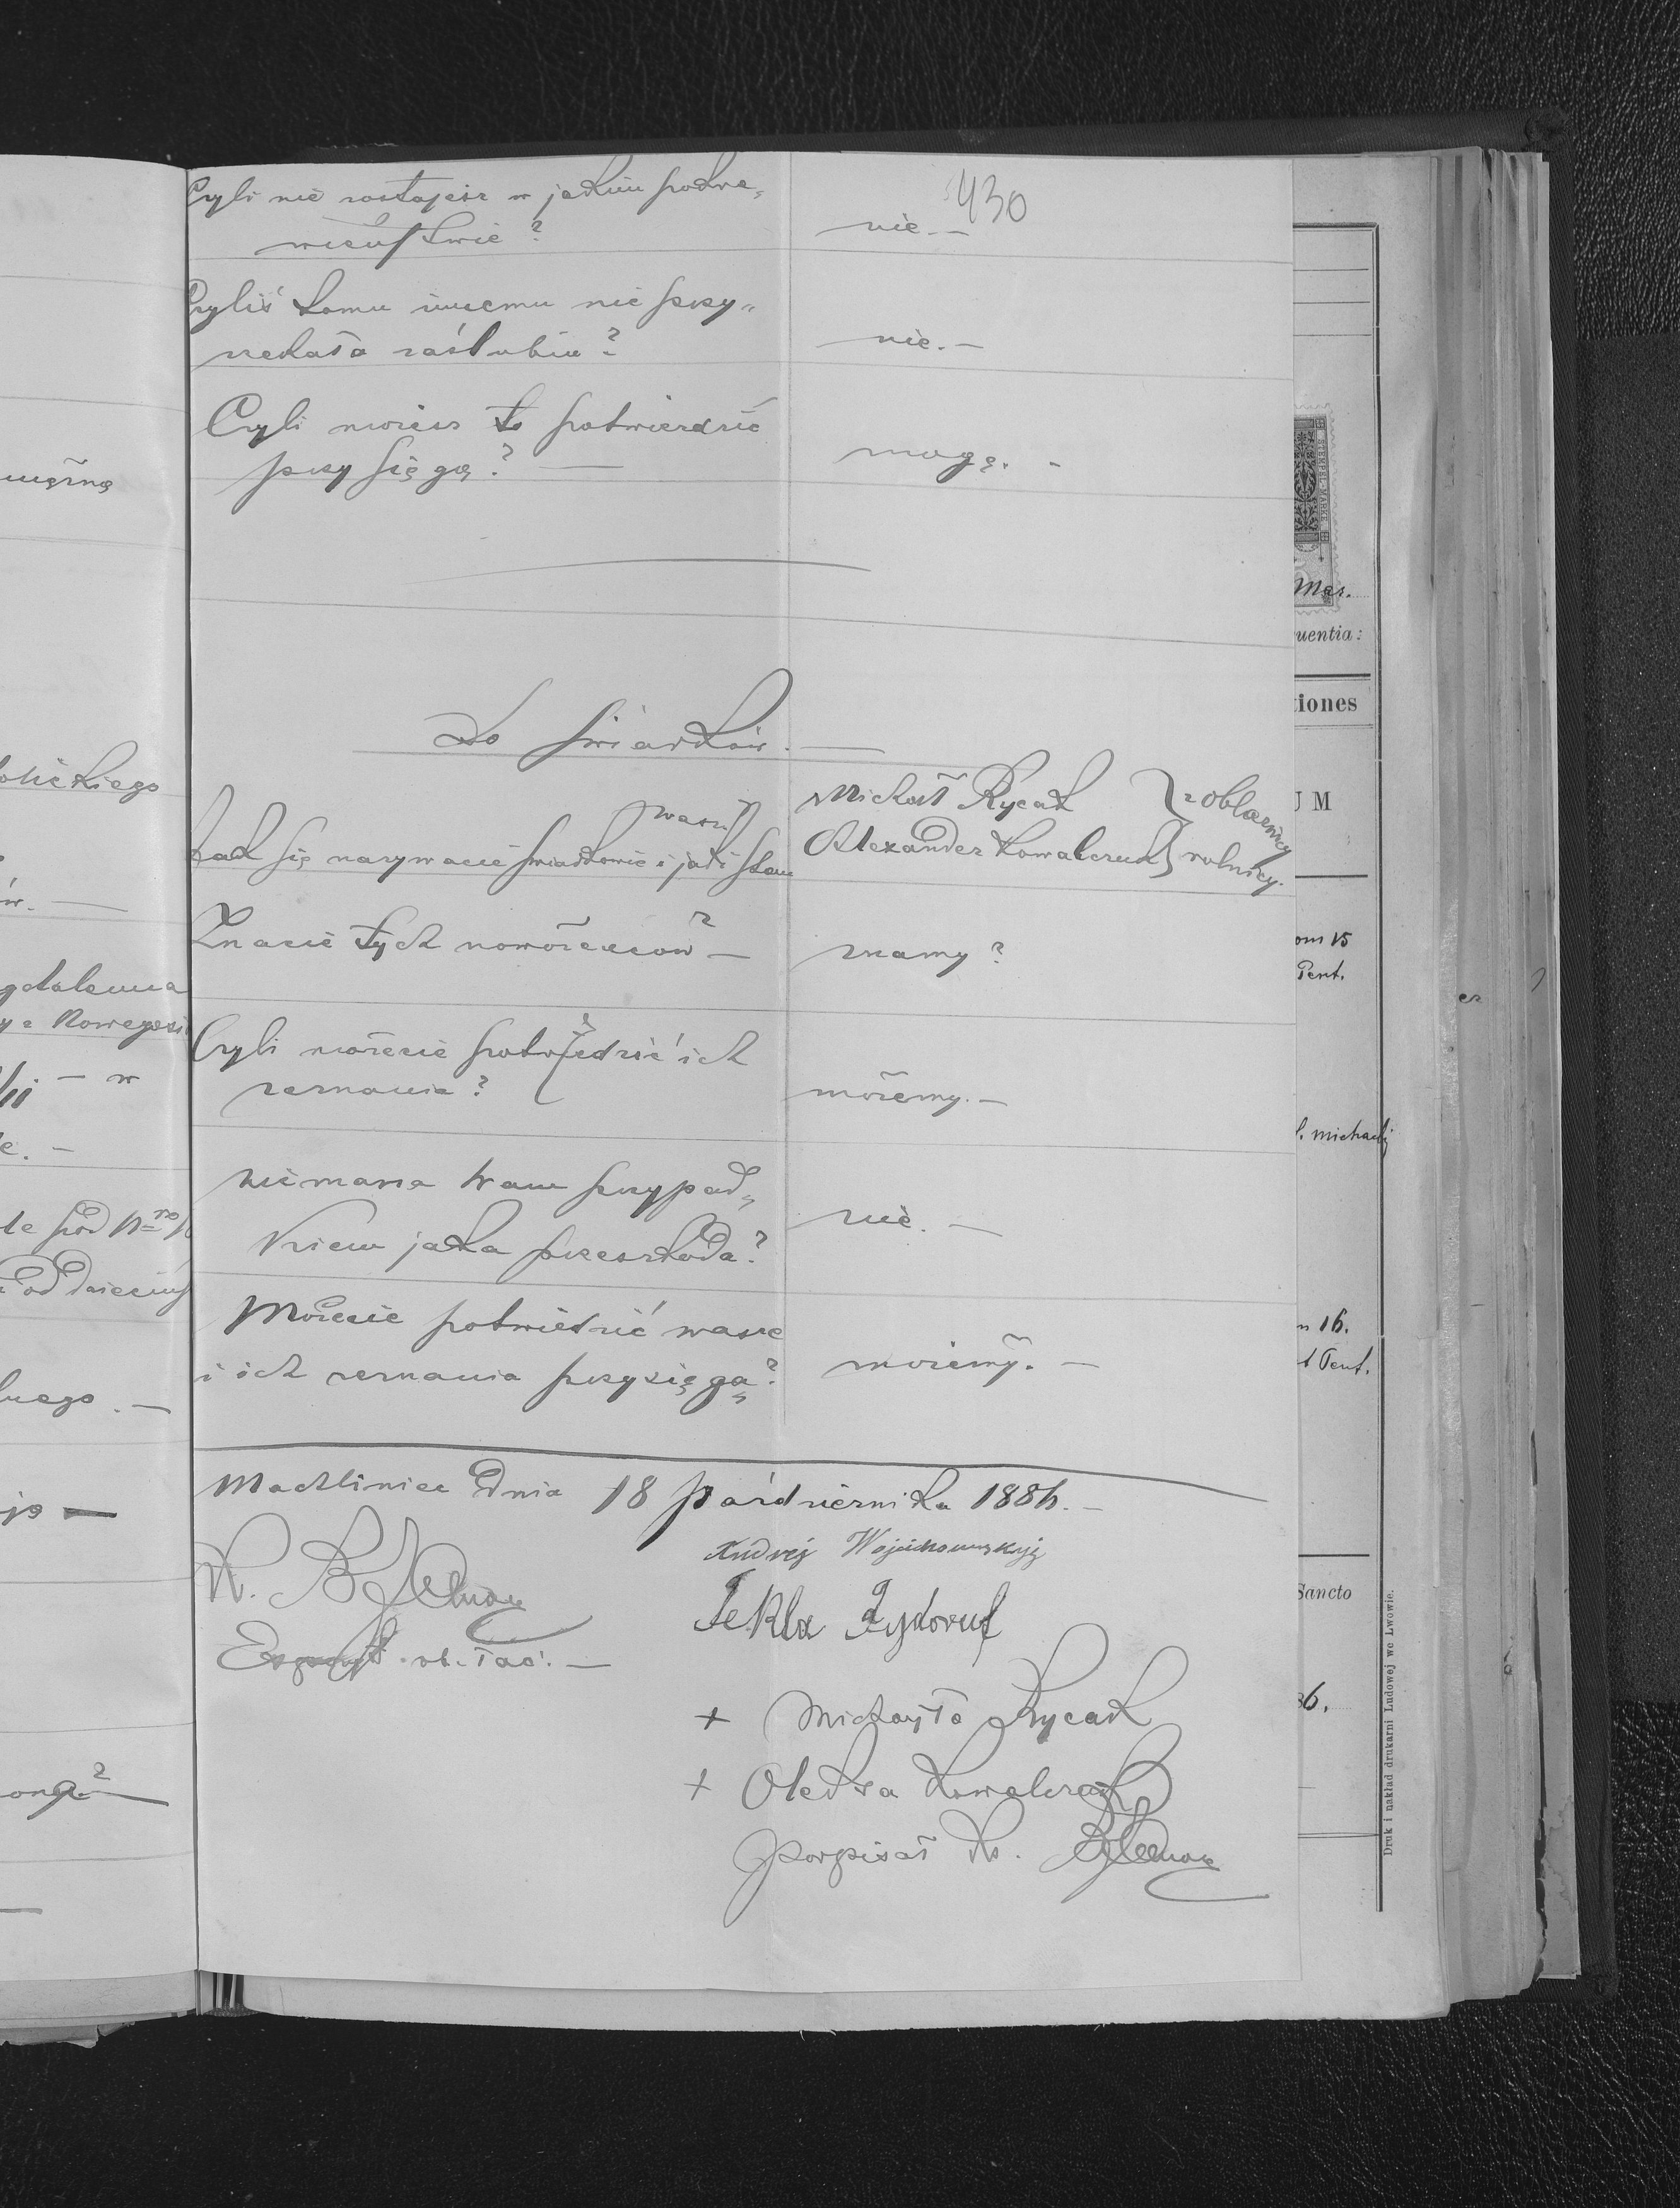 430
Czyli nie zostajesz w jakim pokre„
wieństwie?
nie. —
Czyliś komu innemu nie przy„
rzekała zaślubin?
nie. —
Czyli możesz to potwierdzić
przysięgą? —
mogę. -
Do świadków. —
Jak się nazywacie świadkowie i jaki wasz stan
Michał Rycak
Alexander Kowalczuk
z Obłaźnicy
rolnicy.
Znacie tych nowożeńców? —
znamy?
Czyli możecie potwierdzić ich
zeznania?
możemy. —
nie masza Wam przypad„
kiem jaka przeszkoda?
nie. —
Możecie potwiedzić wasze
i ich zeznania przysięgą?
możemy. —
Machliniec Dnia 18 października 1886. —
Andrej Wojcichowskyj
Tekla
ob. łać. —
+ Michajło Rycak
+ Olexa Kowalczuk
podpisał Ks.
mężną
olickiego
ów. —
gdalenna
/II — w
e. —
le pod Nro
lnego. —
ona? —
STEMPEL-MARKE
Mar.
quentia:
tiones
UM
om 15
Pent.
l. Michaeli
n 16.
t Pent.
Sancto
86.
Druk i nakład drukarni Ludowej we Lwowie.